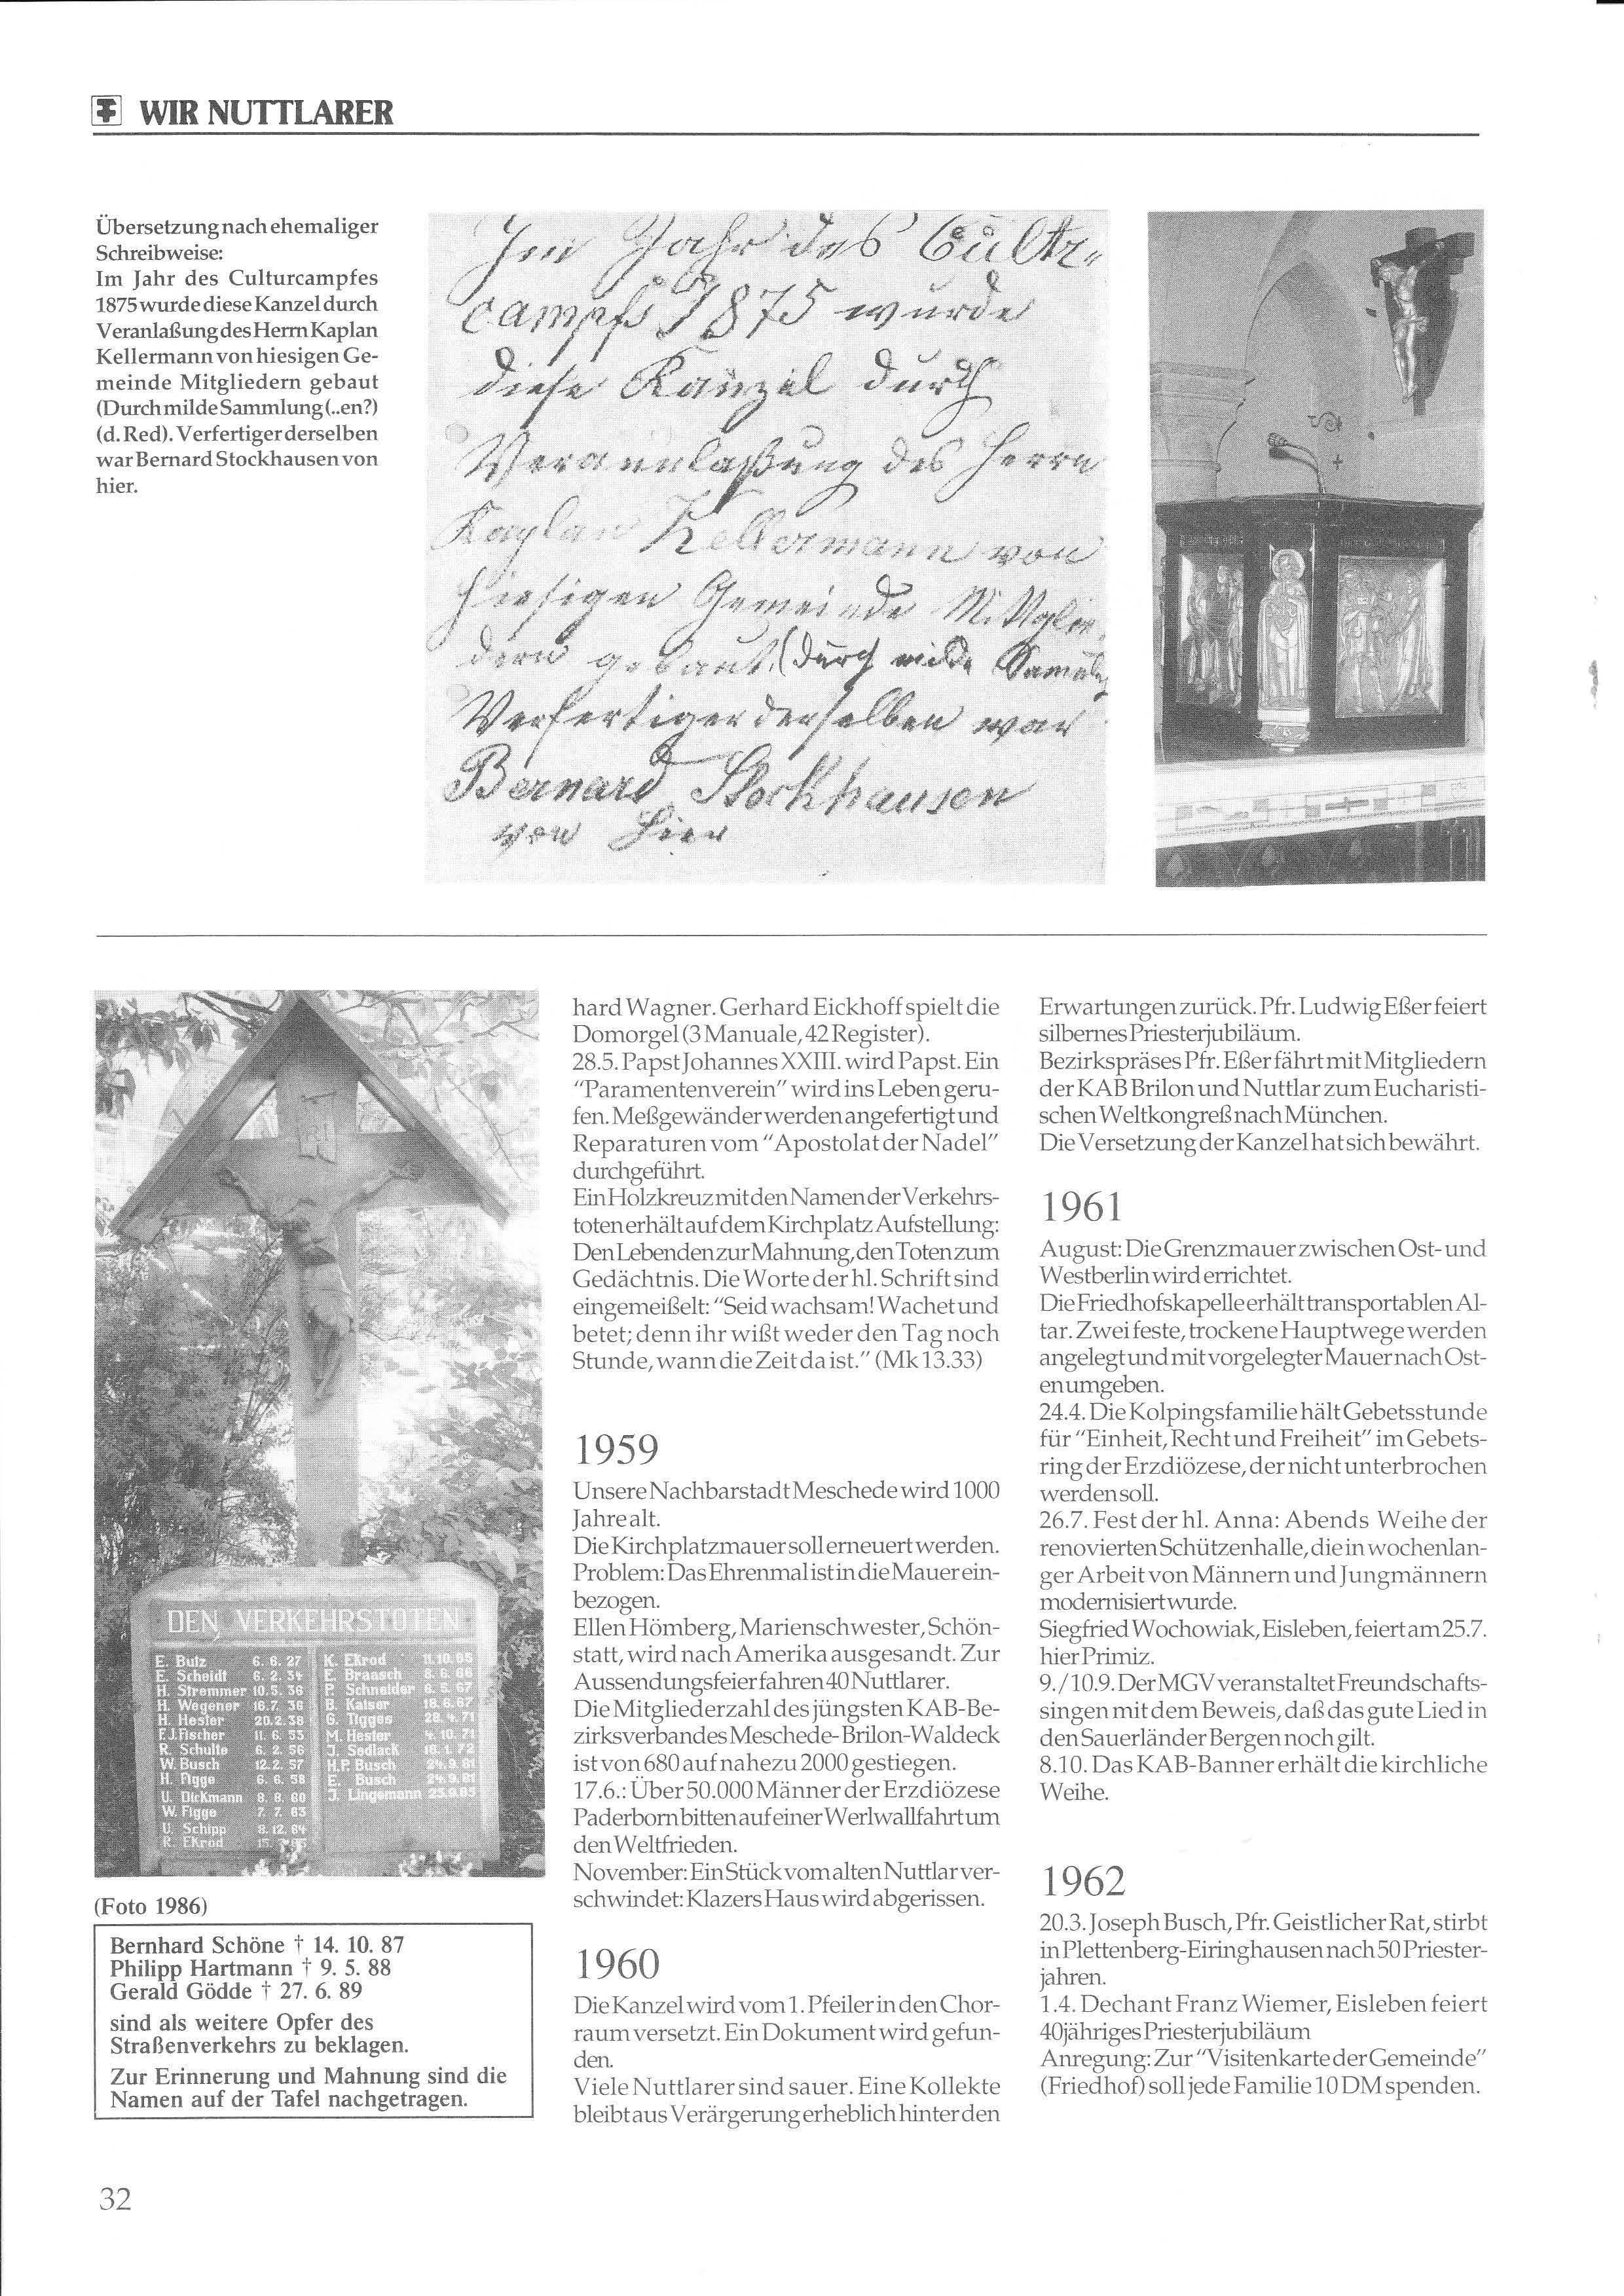 WIR NUTTLARER
Übersetzung nach ehemaliger
Schreibweise:
Im Jahr des Culturcampfes
1875 wurde diese Kanzel durch
Veranlaßung des Herrn Kaplan
Kellermann von hiesigen Ge-
meinde Mitgliedern gebaut
(Durch milde Sammlung (..en?)
(d. Red). Verfertiger derselben
war Bernard Stockhausen von
hier.
Im Jahr des Cultr-
campfs 1875 wurde
diese Kanzel durch
Verannlaßung des Herrn
Kaplan Kellermann von
hiesigen Gemeinde Mittglie-
dern gebaut (durch milde
Verfertiger derselben war
Bernard Stockhausen
von hier
DEN VERKEHRSTOTEN
E. Butz 6. 8. 27
E. Scheidt 6. 2. 34
H. Stremmer 10. 5. 36
H. Wegener 16. 7. 36
H. Hester 20. 2. 38
F.J. Fischer 11. 6. 53
R. Schulte 6. 2. 56
W. Busch 12. 2. 57
H. Figge 6. 6. 58
U. Dickmann 8. 8. 60
W. Figge 7. 7. 63
U. Schipp 8. 12. 64
R. Ekrod 15.
K. Ekrod 11. 10. 65
E. Braasch 8. 6. 66
P. Schneider 6. 5. 67
B. Kaiser 18. 6. 67
G. Tigges 28. 4. 71
M. Hester 4. 10. 71
J. Sedlack 16. 1. 72
H.P. Busch 24. 9. 81
E. Busch 24. 9. 81
J. Lingemann 23. 9. 85
(Foto 1986)
Bernhard Schöne † 14. 10. 87
Philipp Hartmann † 9. 5. 88
Gerald Gödde † 27. 6. 89
sind als weitere Opfer des
Straßenverkehrs zu beklagen.
Zur Erinnerung und Mahnung sind die
Namen auf der Tafel nachgetragen.
hard Wagner. Gerhard Eickhoff spielt die
Domorgel (3 Manuale, 42 Register).
28.5. Papst Johannes XXIII. wird Papst. Ein
"Paramentenverein" wird ins Leben geru-
fen. Meßgewänder werden angefertigt und
Reparaturen vom "Apostolat der Nadel"
durchgeführt.
Ein Holzkreuz mit den Namen der Verkehrs-
toten erhält auf dem Kirchplatz Aufstellung:
Den Lebenden zur Mahnung, den Toten zum
Gedächtnis. Die Worte der hl. Schrift sind
eingemeißelt: "Seid wachsam! Wachet und
betet; denn ihr wißt weder den Tag noch
Stunde, wann die Zeit da ist." (Mk 13.33)
1959
Unsere Nachbarstadt Meschede wird 1000
Jahre alt.
Die Kirchplatzmauer soll erneuert werden.
Problem: Das Ehrenmal ist in die Mauer ein-
bezogen.
Ellen Hömberg, Marienschwester, Schön-
statt, wird nach Amerika ausgesandt. Zur
Aussendungsfeier fahren 40 Nuttlarer.
Die Mitgliederzahl des jüngsten KAB-Be-
zirksverbandes Meschede-Brilon-Waldeck
ist von 680 auf nahezu 2000 gestiegen.
17.6.: Über 50.000 Männer der Erzdiözese
Paderborn bitten auf einer Werlwallfahrt um
den Weltfrieden.
November: Ein Stück vom alten Nuttlar ver-
schwindet: Klazers Haus wird abgerissen.
1960
Die Kanzel wird vom 1. Pfeiler in den Chor-
raum versetzt. Ein Dokument wird gefun-
den.
Viele Nuttlarer sind sauer. Eine Kollekte
bleibt aus Verärgerung erheblich hinter den
Erwartungen zurück. Pfr. Ludwig Eßer feiert
silbernes Priesterjubiläum.
Bezirkspräses Pfr. Eßer fährt mit Mitgliedern
der KAB Brilon und Nuttlar zum Eucharisti-
schen Weltkongreß nach München.
Die Versetzung der Kanzel hat sich bewährt.
1961
August: Die Grenzmauer zwischen Ost- und
Westberlin wird errichtet.
Die Friedhofskapelle erhält transportablen Al-
tar. Zwei feste, trockene Hauptwege werden
angelegt und mit vorgelegter Mauer nach Ost-
en umgeben.
24.4. Die Kolpingsfamilie hält Gebetsstunde
für "Einheit, Recht und Freiheit" im Gebets-
ring der Erzdiözese, der nicht unterbrochen
werden soll.
26.7. Fest der hl. Anna: Abends Weihe der
renovierten Schützenhalle, die in wochenlan-
ger Arbeit von Männern und Jungmännern
modernisiert wurde.
Siegfried Wochowiak, Eisleben, feiert am 25.7.
hier Primiz.
9./10.9. Der MGV veranstaltet Freundschafts-
singen mit dem Beweis, daß das gute Lied in
den Sauerländer Bergen noch gilt.
8.10. Das KAB-Banner erhält die kirchliche
Weihe.
1962
20.3. Joseph Busch, Pfr. Geistlicher Rat, stirbt
in Plettenberg-Eiringhausen nach 50 Priester-
jahren.
1.4. Dechant Franz Wiemer, Eisleben feiert
40jähriges Priesterjubiläum
Anregung: Zur "Visitenkarte der Gemeinde"
(Friedhof) soll jede Familie 10 DM spenden.
32